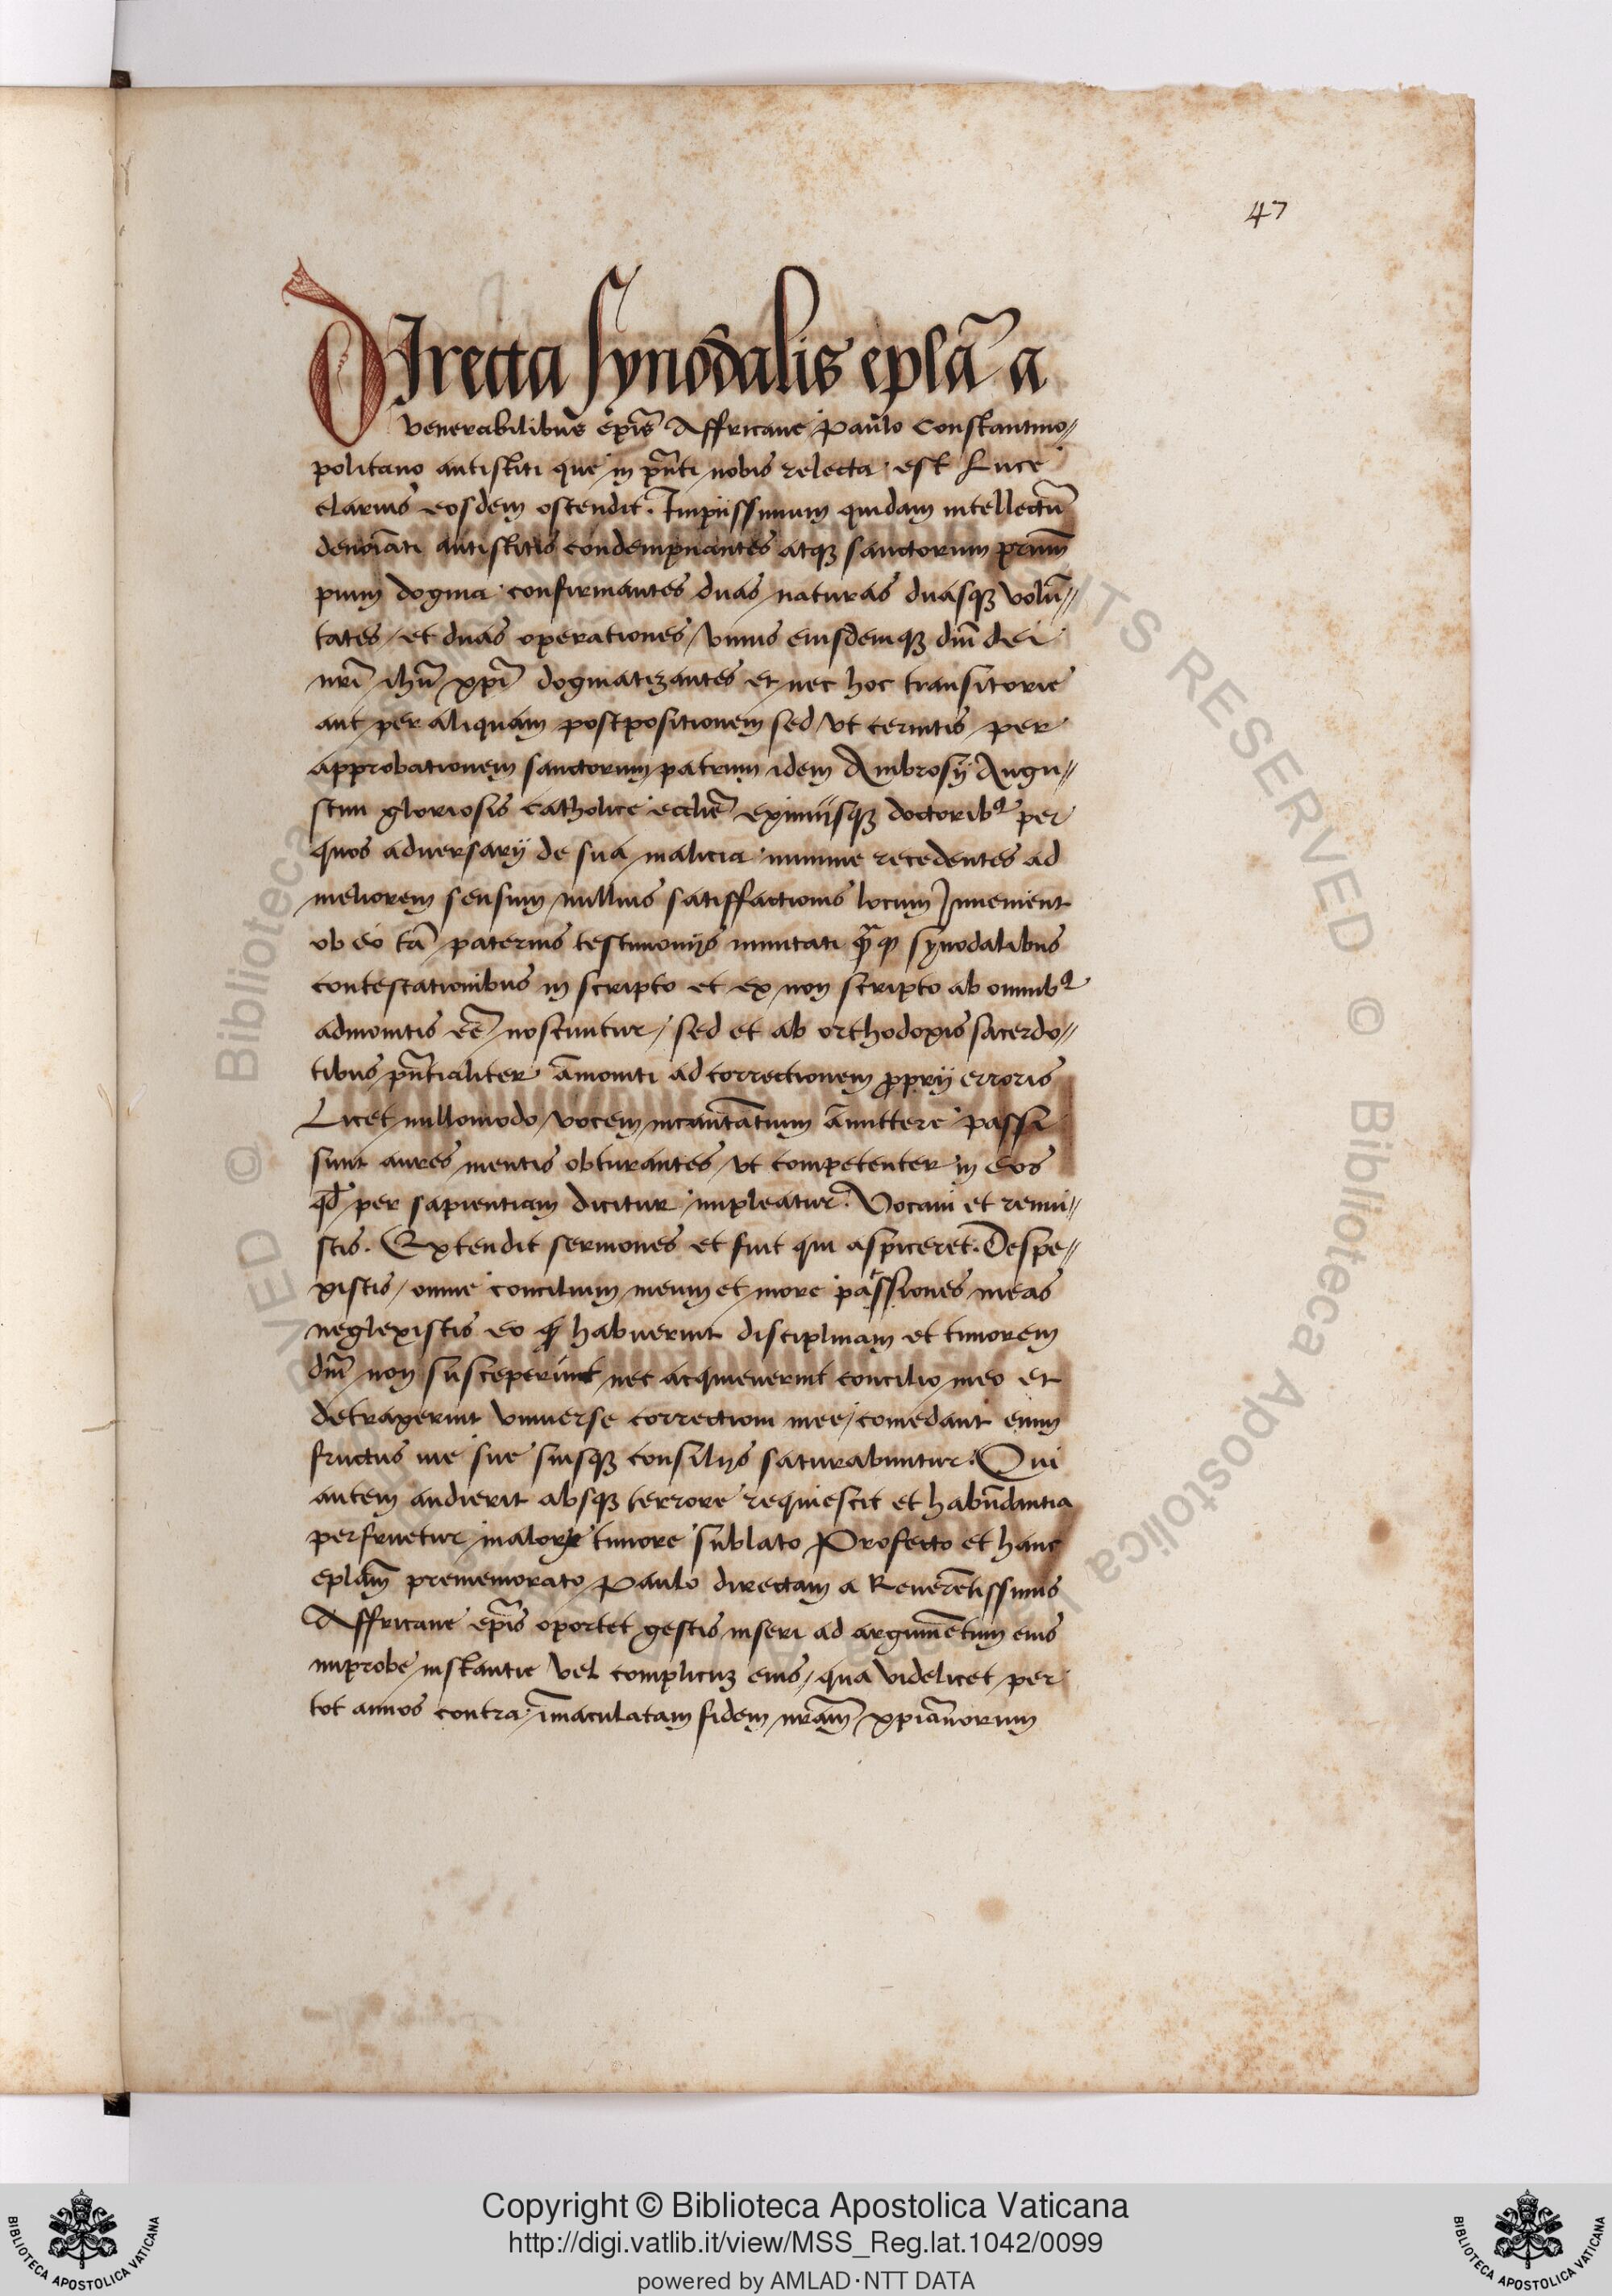 47
DIrecta synodalis epl̃a a
venerabilibus ep̃is Affricane Paulo Constantino//
politano antistiti que in p̃nti nobis relecta est Luce
clarius eosdem ostendit. Impiissimum quidam intellectũ
antistitis condempnantes atqꝫ sanctorum
pium dogma confirmantes duas naturas duasqꝫ volũ//
tates / et duas operationes / vnius eiusdemqꝫ dñi dei
nr̃i ihũ xp̃i dogmatizantes et nec hoc transitorie
aut per aliquam postpositionem sed vt cernitis per
approbationem sanctorum patrum idem Ambrosij Augu//
stini gloriosis catholice ecclie͂ eximiisqꝫ doctoribꝰ per
quos aduersarij de sua malicia minime recedentes ad
meliorem sensum nullius satisffactionis locum Inuenient
ob eo tã paternis testimonijs inuitati synodalibus
contestationibus in scripto et ex non scripto ab omnibꝰ
admonitis ee͂ noscuntur / sed et ab orthodoxis sacerdo//
tibus pñtialiter ãmoniti ad correctionem proprij erroris
Licet nullomodo vocem incantãtium ãmittere passi
sunt aures mentis obturantes / vt competenter in eos
qd̃ per sapientiam dicitur impleatur. Vocaui et renui//
stis. Extendit sermones et fuit qui aspiceret. Despe//
xistis / omne concilium meum et more passiones meas
neglexistis eo habuerint disciplinam et timorem
dñi non susceperint nec acquieuerint concilio meo et
detraxerint vniuerse correctioni mee / comedant enim
fructus vie sue suisqꝫ consilijs saturabuntur. Qui
autem audierit absqꝫ terrore requiescit et habũdantia
perfruetur malorꝝ timore sublato Profecto et hanc
epl̃am prememorato Paulo directam a Reuere͂tissimis
Affricane ep̃is oportet gestis inseri ad argume͂tum eius
improbe instantie vel complicuꝫ eius / qua videlicet per
tot annos contra ĩmaculatam fidem nr̃am xp̃ianorum
Copyright © Biblioteca Apostolica Vaticana
http://digi.vatlib.it/view/MSS_Reg.lat.1042/0099
powered by AMLAD·NTT DATA